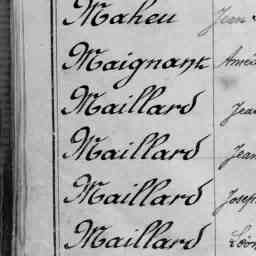 Maheu Jean
Maignant Amé
Maillard Jea
Maillard Jean
Maillard Joseph
Maillard Léon